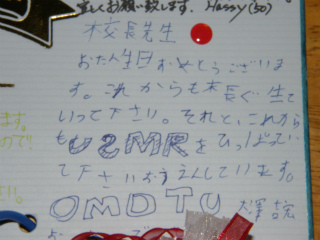 宜しくお願い致します。Hassy(50)
校長先生
おたん生日おめでとうございま
す。これからも末長く生きて
いって下さい。それと、これから
もU2MRをひっぱってい
て下さいおうえんしています。
OMDTU
ます。
ので